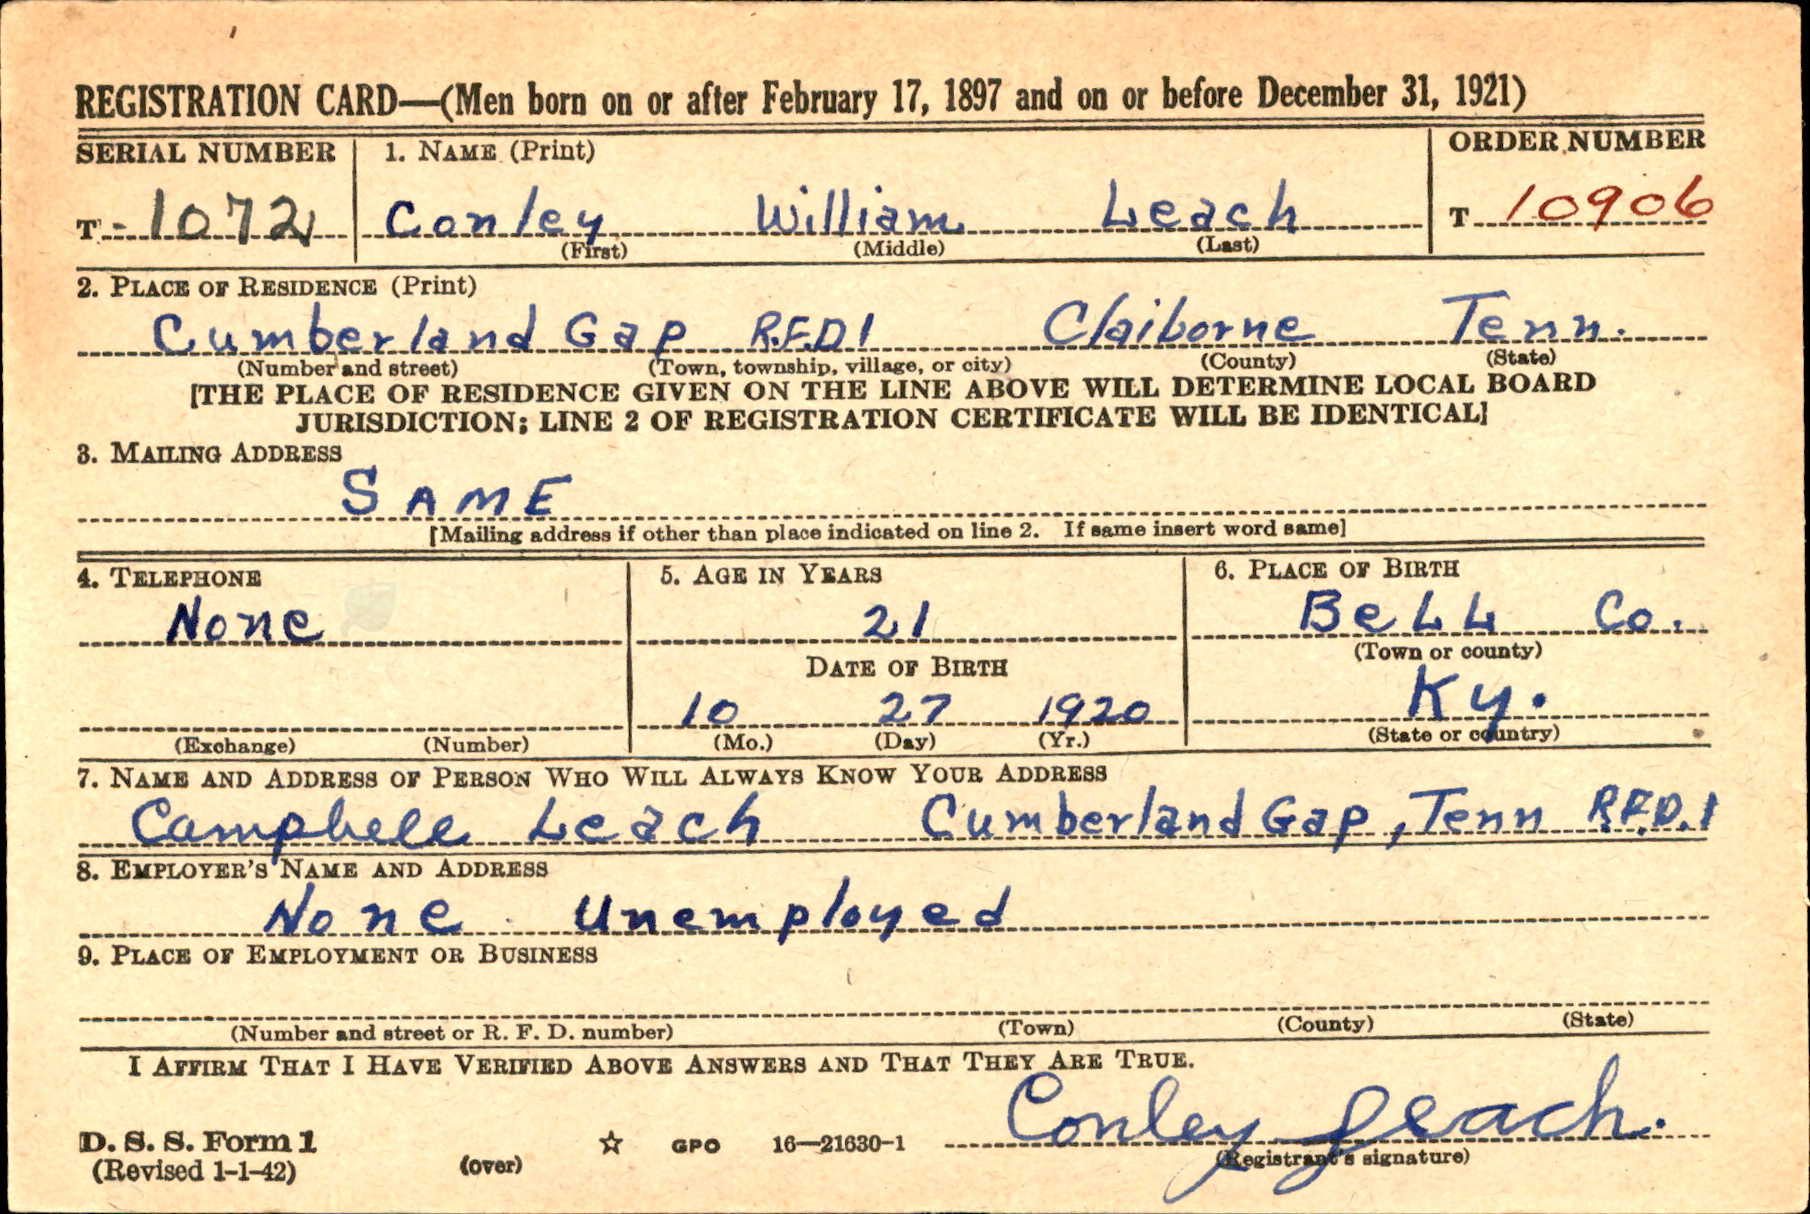 REGISTRATION CARD—(Men born on or after February 17, 1897 and on or before December 31, 1921)
SERIAL NUMBER 1. NAME (Print) ORDER NUMBER
T - 1072 Conley William Leach T 10906
(First) (Middle) (Last)
2. PLACE OF RESIDENCE (Print)
Cumberland Gap R.F.D 1 Claiborne Tenn.
(Number and street) (Town, township, village, or city) (County) (State)
[THE PLACE OF RESIDENCE GIVEN ON THE LINE ABOVE WILL DETERMINE LOCAL BOARD
JURISDICTION; LINE 2 OF REGISTRATION CERTIFICATE WILL BE IDENTICAL]
3. MAILING ADDRESS
SAME
[Mailing address if other than place indicated on line 2. If same insert word same]
4. TELEPHONE 5. AGE IN YEARS 6. PLACE OF BIRTH
None 21 BeLL Co.
DATE OF BIRTH (Town or county)
10 27 1920 Ky.
(Exchange) (Number) (Mo.) (Day) (Yr.) (State or country)
7. NAME AND ADDRESS OF PERSON WHO WILL ALWAYS KNOW YOUR ADDRESS
Campbell Leach Cumberland Gap, Tenn R.F.D. 1
8. EMPLOYER'S NAME AND ADDRESS
None Unemployed
9. PLACE OF EMPLOYMENT OR BUSINESS
(Number and street or R. F. D. number) (Town) (County) (State)
I AFFIRM THAT I HAVE VERIFIED ABOVE ANSWERS AND THAT THEY ARE TRUE.
Conley Leach.
D. S. S. Form 1 ☆ GPO 16—21630-1
(Revised 1-1-42) (over) (Registrant's signature)